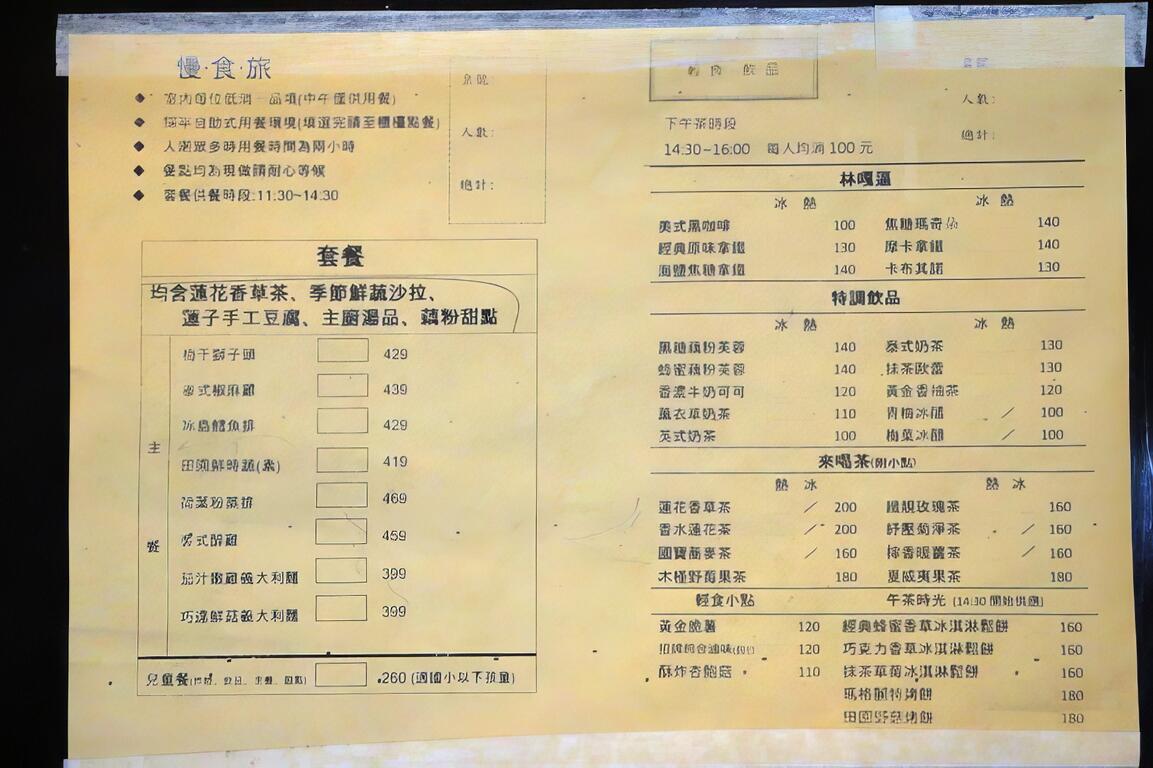 慢·食·旅
桌號:
人數:
總計:
人潮眾多時用餐時間為兩小時
餐點均為現做請耐心等候
套餐供餐時段:11:30~14:30
套餐
均含蓮花香草茶、季節鮮蔬沙拉、
蓮子手工豆腐、主廚湯品、藕粉甜點
主
餐
梅干獅子頭 429
泰式椒麻雞 439
冰島鱈魚排 429
田園鮮時蔬(素) 419
荷葉粉蒸排 469
式醉雞 459
茄汁嫩雞義大利麵 399
巧達鮮菇義大利麵 399
兒童餐 260 (適國小以下孩童)
輕食 飲品
人數:
總計:
下午茶時段
14:30~16:00 每人均消 100 元
林嘎逼
冰 熱 冰 熱
美式黑咖啡 100 焦糖瑪奇朵 140
經典原味拿鐵 130 摩卡拿鐵 140
海鹽焦糖拿鐵 140 卡布其諾 130
特調飲品
冰 熱 冰 熱
黑糖藕粉芙蓉 140 泰式奶茶 130
蜂蜜藕粉芙蓉 140 抹茶歐蕾 130
香濃牛奶可可 120 黃金香柚茶 120
薰衣草奶茶 110 青梅冰醋 ／ 100
英式奶茶 100 梅藥冰醋 ／ 100
來喝茶(附小點)
熱 冰 熱 冰
蓮花香草茶 ／ 200 纖靚玫瑰茶 160
香水蓮花茶 ／ 200 紓壓菊淨茶 ／ 160
國寶蕎麥茶 ／ 160 檸香暖薑茶 ／ 160
木槿野莓果茶 180 夏威夷果茶 180
輕食小點 午茶時光 (14:30 開始供應)
黃金脆薯 120 經典蜂蜜香草冰淇淋鬆餅 160
120 巧克力香草冰淇淋鬆餅 160
酥炸杏鮑菇 110 抹茶草莓冰淇淋鬆餅 160
瑪格麗特烤餅 180
田園野菇烤餅 180